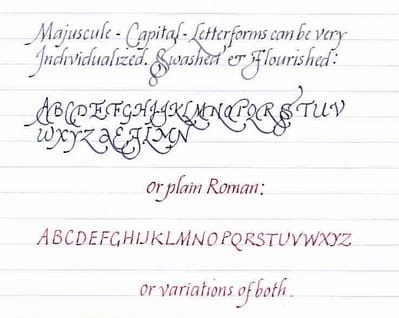 Majuscule - Capital - Letterforms can be very
Individualized. Swashed & Flourished:
ABCDEFGHIJKLMNOPQRSTUV
WXYZ & EALMN
Or plain Roman:
ABCDEFGHIJKLMNOPQRSTUVWXYZ
or variations of both.